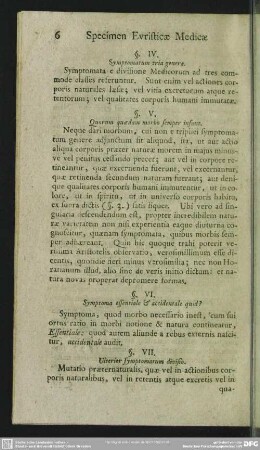 6 Specimen Evristicæ Medicæ
§. IV.
Symptomatum tria genera.
Symptomata e divisione Medicorum ad tres com-
mode classes referuntur. Sunt enim vel actiones cor-
poris naturales læsæ; vel vitia excretorum atque re-
tentorum; vel qualitates corporis humani immutatæ.
§. V.
Quorum quædam morbo semper insunt.
Neque dari morbum, cui non e triplici symptoma-
tum genere adjunctum sit aliquod, ita, ut aut actio
aliqua corporis præter naturæ morem in majus minus-
ve vel penitus cessando peccet; aut vel in corpore re-
tineantur, quæ excernenda fuerant, vel excernantur,
quæ retinenda secundum naturam fuerant; aut deni-
que qualitates corporis humani immutentur, ut in co-
lore, ut in spiritu, ut in universo corporis habitu,
ex supra dictis (§. 3.) satis liquet. Ubi vero ad sin-
gularia descendendum est, propter incredibilem natu-
ræ varietatem non nisi experientia eaque diuturna co-
gnoscitur, quænam symptomata, quibus morbis sem-
per adhæreant. Quin his quoque trahi poterit ve-
rissima Aristotelis observatio, verosimillimum esse di-
centis, quondie fieri minus verosimilia; nec non Ho-
ratianum illud, alio sine de veris initio dictum: et na-
tura novas properat depromere formas.
§. VI.
Symptoma essentiale & accidentale quid?
Symptoma, quod morbo necessario inest, cum sui
ortus ratio in morbi notione & natura contineatur,
Essentiale; quod autem aliunde a rebus externis nasci-
tur, accidentale audit.
§. VII.
Ulterior symptomatum divisio.
Mutatio præternaturalis, quæ vel in actionibus cor-
poris naturalibus, vel in retentis atque excretis vel in
qua-